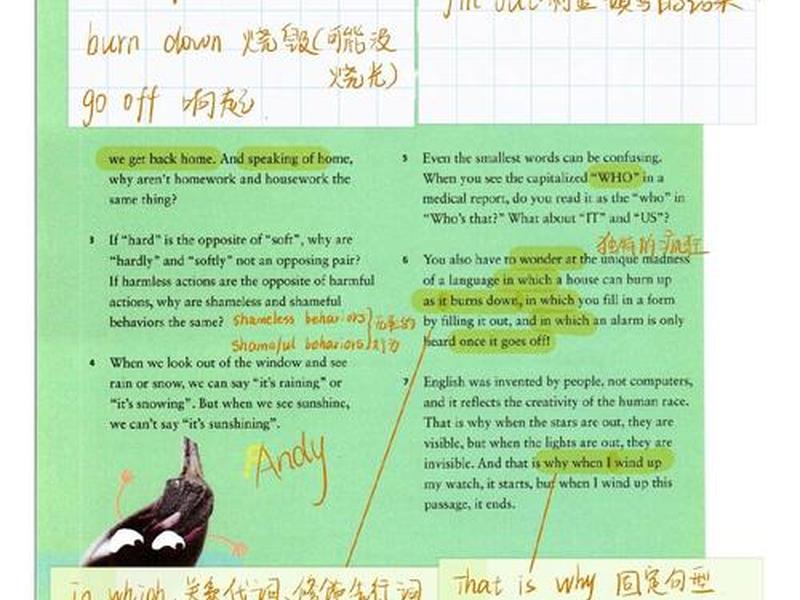 burn down 烧毁(可能没
烧光)
go off 响起
we get back home. And speaking of home,
why aren't homework and housework the
same thing?
3 If “hard” is the opposite of “soft”, why are
“hardly” and “softly” not an opposing pair?
If harmless actions are the opposite of harmful
actions, why are shameless and shameful
behaviors the same? shameless behaviors
shameful behaviors
4 When we look out of the window and see
rain or snow, we can say “it's raining” or
“it's snowing”. But when we see sunshine,
we can't say “it's sunshining”.
Andy
5 Even the smallest words can be confusing.
When you see the capitalized “WHO” in a
medical report, do you read it as the “who” in
“Who's that?” What about “IT” and “US”?
独特的疯狂
6 You also have to wonder at the unique madness
of a language in which a house can burn up
as it burns down, in which you fill in a form
by filling it out, and in which an alarm is only
heard once it goes off!
7 English was invented by people, not computers,
and it reflects the creativity of the human race.
That is why when the stars are out, they are
visible, but when the lights are out, they are
invisible. And that is why when I wind up
my watch, it starts, but when I wind up this
passage, it ends.
in which 关系代词、修饰先行词
That is why 固定句型